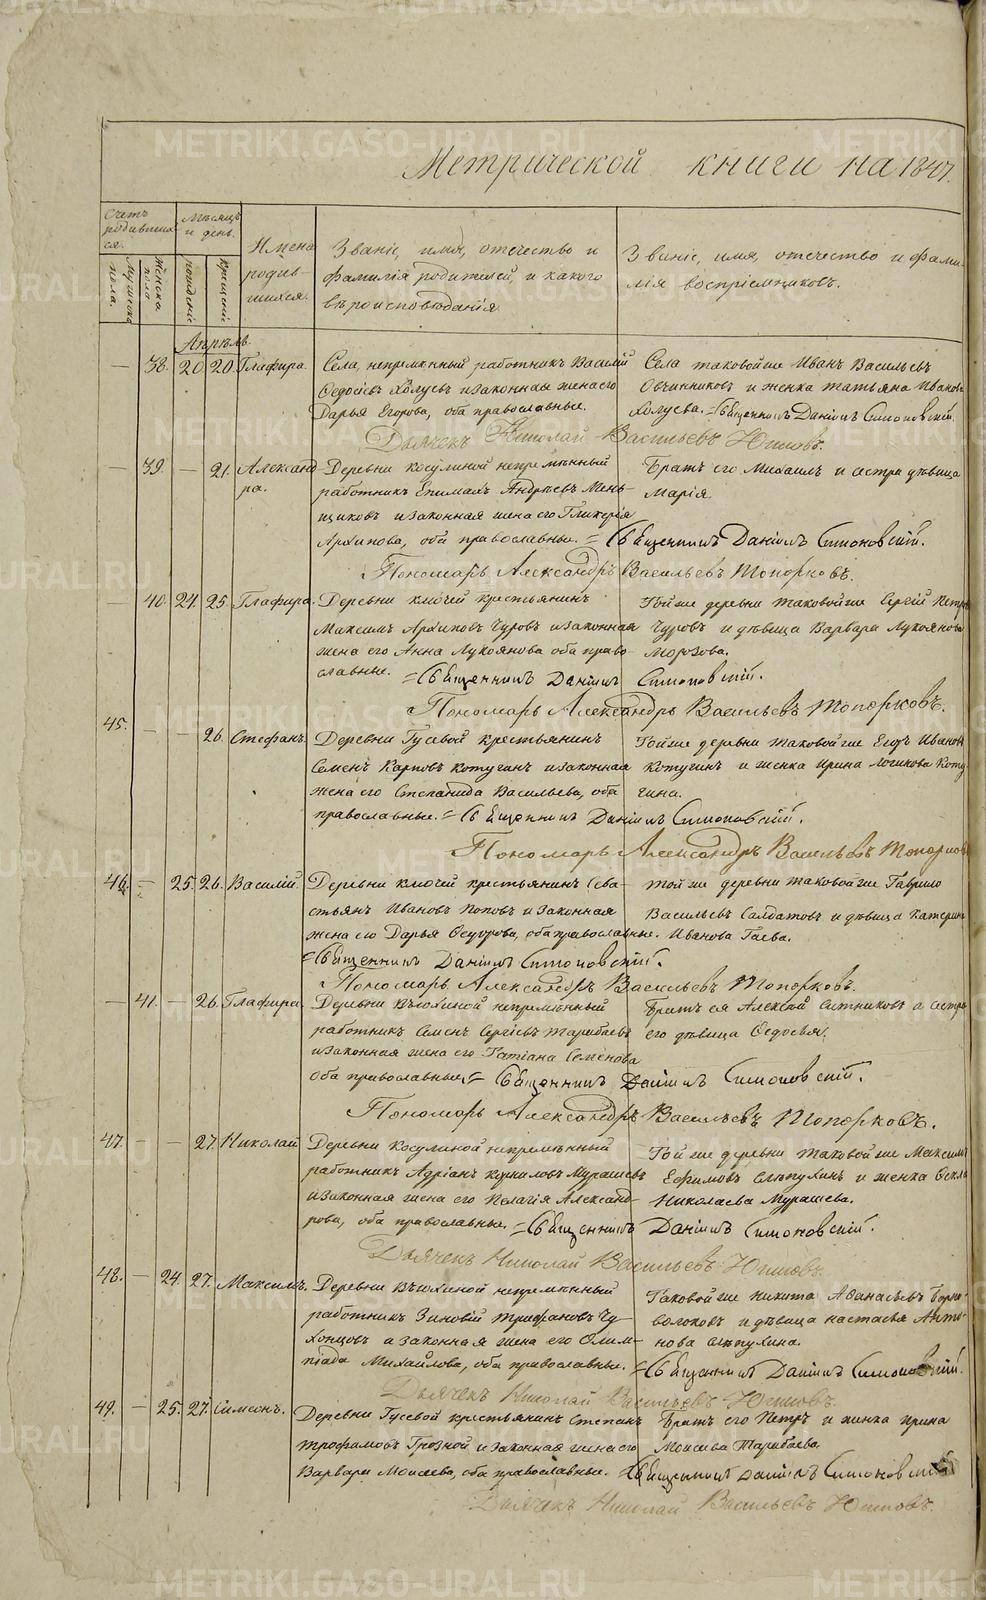 Метрической книги на 1847.
Счетъ родившихся.
Мѣсяцъ и день.
Имена родившихся.
Званіе, имя, отечество и
фамилія родителей, и какого
вѣроисповѣданія.
Званіе, имя, отечество и фами-
лія воспріемниковъ.
Мужеска пола.
Женска пола
рожденія
крещенія
Апрѣль.
— 38. 20 20. Глафира.
Села, непремѣнный работникъ Василій
Федосѣевъ Холуевъ и законная жена его
Дарья Егорова, оба православные.
Села таковой же Иванъ Васильевъ
Овчинниковъ и женка татьяна Иванов
Холуева. = Священникъ Даніилъ Симоновскій.
Дьячекъ Николай Васильевъ
— 39. — 21. Александ-
ра.
Деревни косулиной непремѣнный
работникъ Андрѣевъ Мень-
щиковъ и законная жена его Гликерія
Архипова, оба православные. = Священникъ Даніилъ Симоновскій.
Братъ его Михаилъ и сестра дѣвица
Марія
Пономарь Александръ Васильевъ Топорковъ.
— 40. 24. 25. Глафира.
Деревни ключей крестьянинъ
Максимъ Архиповъ Чуровъ и законная
жена его Анна Лукоянова оба право-
славные. = Священникъ Даніилъ Симоновскій.
Той же деревни таковой же Сергій Петр
Чуровъ и дѣвица Варвара Лукоянова
Морозова.
Пономарь Александръ Васильевъ Топорковъ.
45. — — 26. Стефанъ.
Деревни Гусевой крестьянинъ
Семенъ Карповъ Котугинъ и законная
жена его Степанида Васильева, оба
православные. = Священникъ Даніилъ Симоновскій.
Той же деревни таковой же Егоръ Иванов
Котугинъ и женка ирина логинова Коту-
гина.
Пономарь Александръ Васильевъ Топорков
46. — 25. 26. Василій.
Деревни ключей крестьянинъ Сева-
стьянъ Ивановъ Поповъ и законная
жена его Дарья Федорова, оба православные.
= Священникъ Даніилъ Симоновскій.
той же деревни таковой же Гаврило
Васильевъ Салдатовъ и дѣвица Катерин
Иванова Гаева.
Пономарь Александръ Васильевъ Топорковъ.
— 41. — 26. Глафира.
Деревни непремѣнный
работникъ Семенъ Сергѣевъ Тарабаевъ
и законная жена его Татіана Семенова
оба православные. = Священникъ Даніилъ Симоновскій.
Братъ ея Алексѣй Ситниковъ а сестра
его дѣвица Федосья.
Пономарь Александръ Васильевъ Топорковъ.
47. — — 27. Николай
Деревни Косулиной непремѣнный
работникъ Адріанъ Мурашевъ
и законная жена его Пелагія Александ-
рова, оба православные. = Священникъ Даніилъ Симоновскій.
Той же деревни таковой же Максимъ
Ефимовъ Слѣпухинъ и женка Фекла
Николаева Мурашева.
Дьячекъ Николай Васильевъ
48. — 24. 27. Максимъ.
Деревни непремѣнный
работникъ Зиновій трифановъ Чу-
хонцовъ а законная жена его Олим-
піада Михайлова, оба православные.
Таковой же никита Афанасьевъ
и дѣвица настасья Анто-
нова Слѣпухина.
= Священникъ Даніилъ Симоновскій.
Дьячекъ Николай Васильевъ
49. — 25. 27. Симеонъ.
Деревни Гусевой крестьянинъ Степанъ
трофимовъ Грозной и законная жена его
Варвара Моисеева, оба православные.
Братъ его Петръ и женка ирина
Моисеева Тарабаева.
Священникъ Даніилъ Симоновскій
Дьячекъ Николай Васильевъ
METRIKI.GASO-URAL.RU